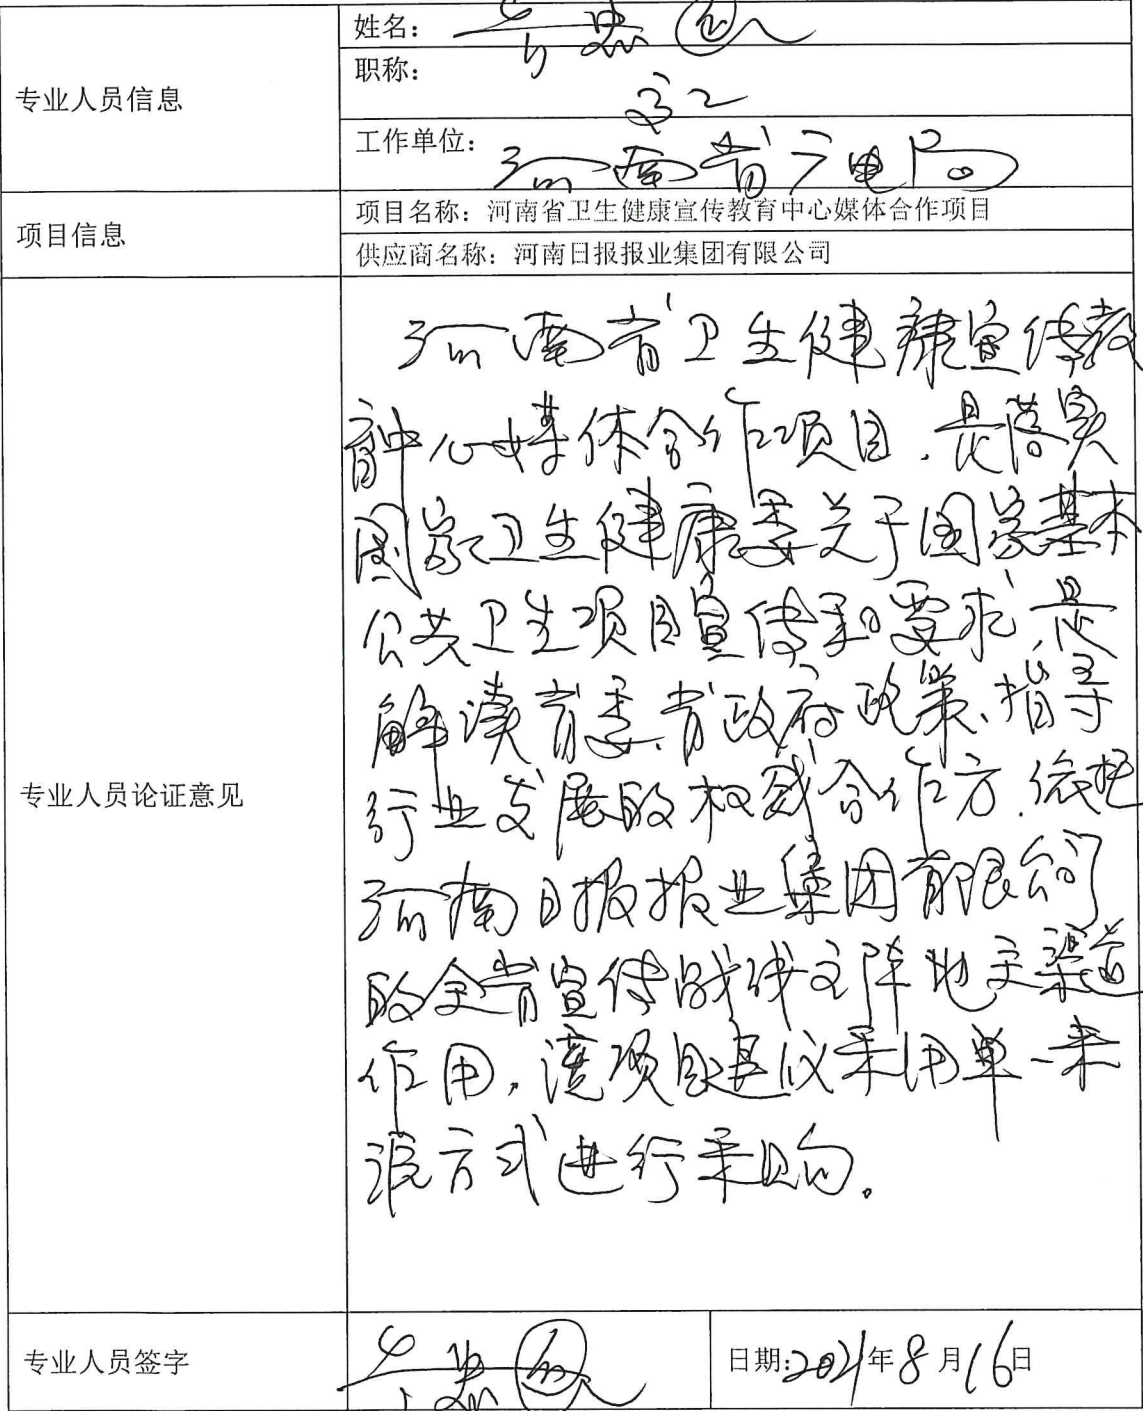 专业人员信息
姓名：
职称：
高工
工作单位：
河南省广电局
项目信息
项目名称：河南省卫生健康宣传教育中心媒体合作项目
供应商名称：河南日报报业集团有限公司
专业人员论证意见
河南省卫生健康宣传教
育中心媒体合作项目，是落实
国家卫生健康委关于国家基本
公共卫生项目宣传和要求，是
解读省委、省政府政策、指导
行业发展的权威合作方，依托
河南日报报业集团有限公司
的全省宣传战线主阵地主渠道
作用，该项目建议采用单一来
源方式进行采购。
专业人员签字
日期：2021年8月16日